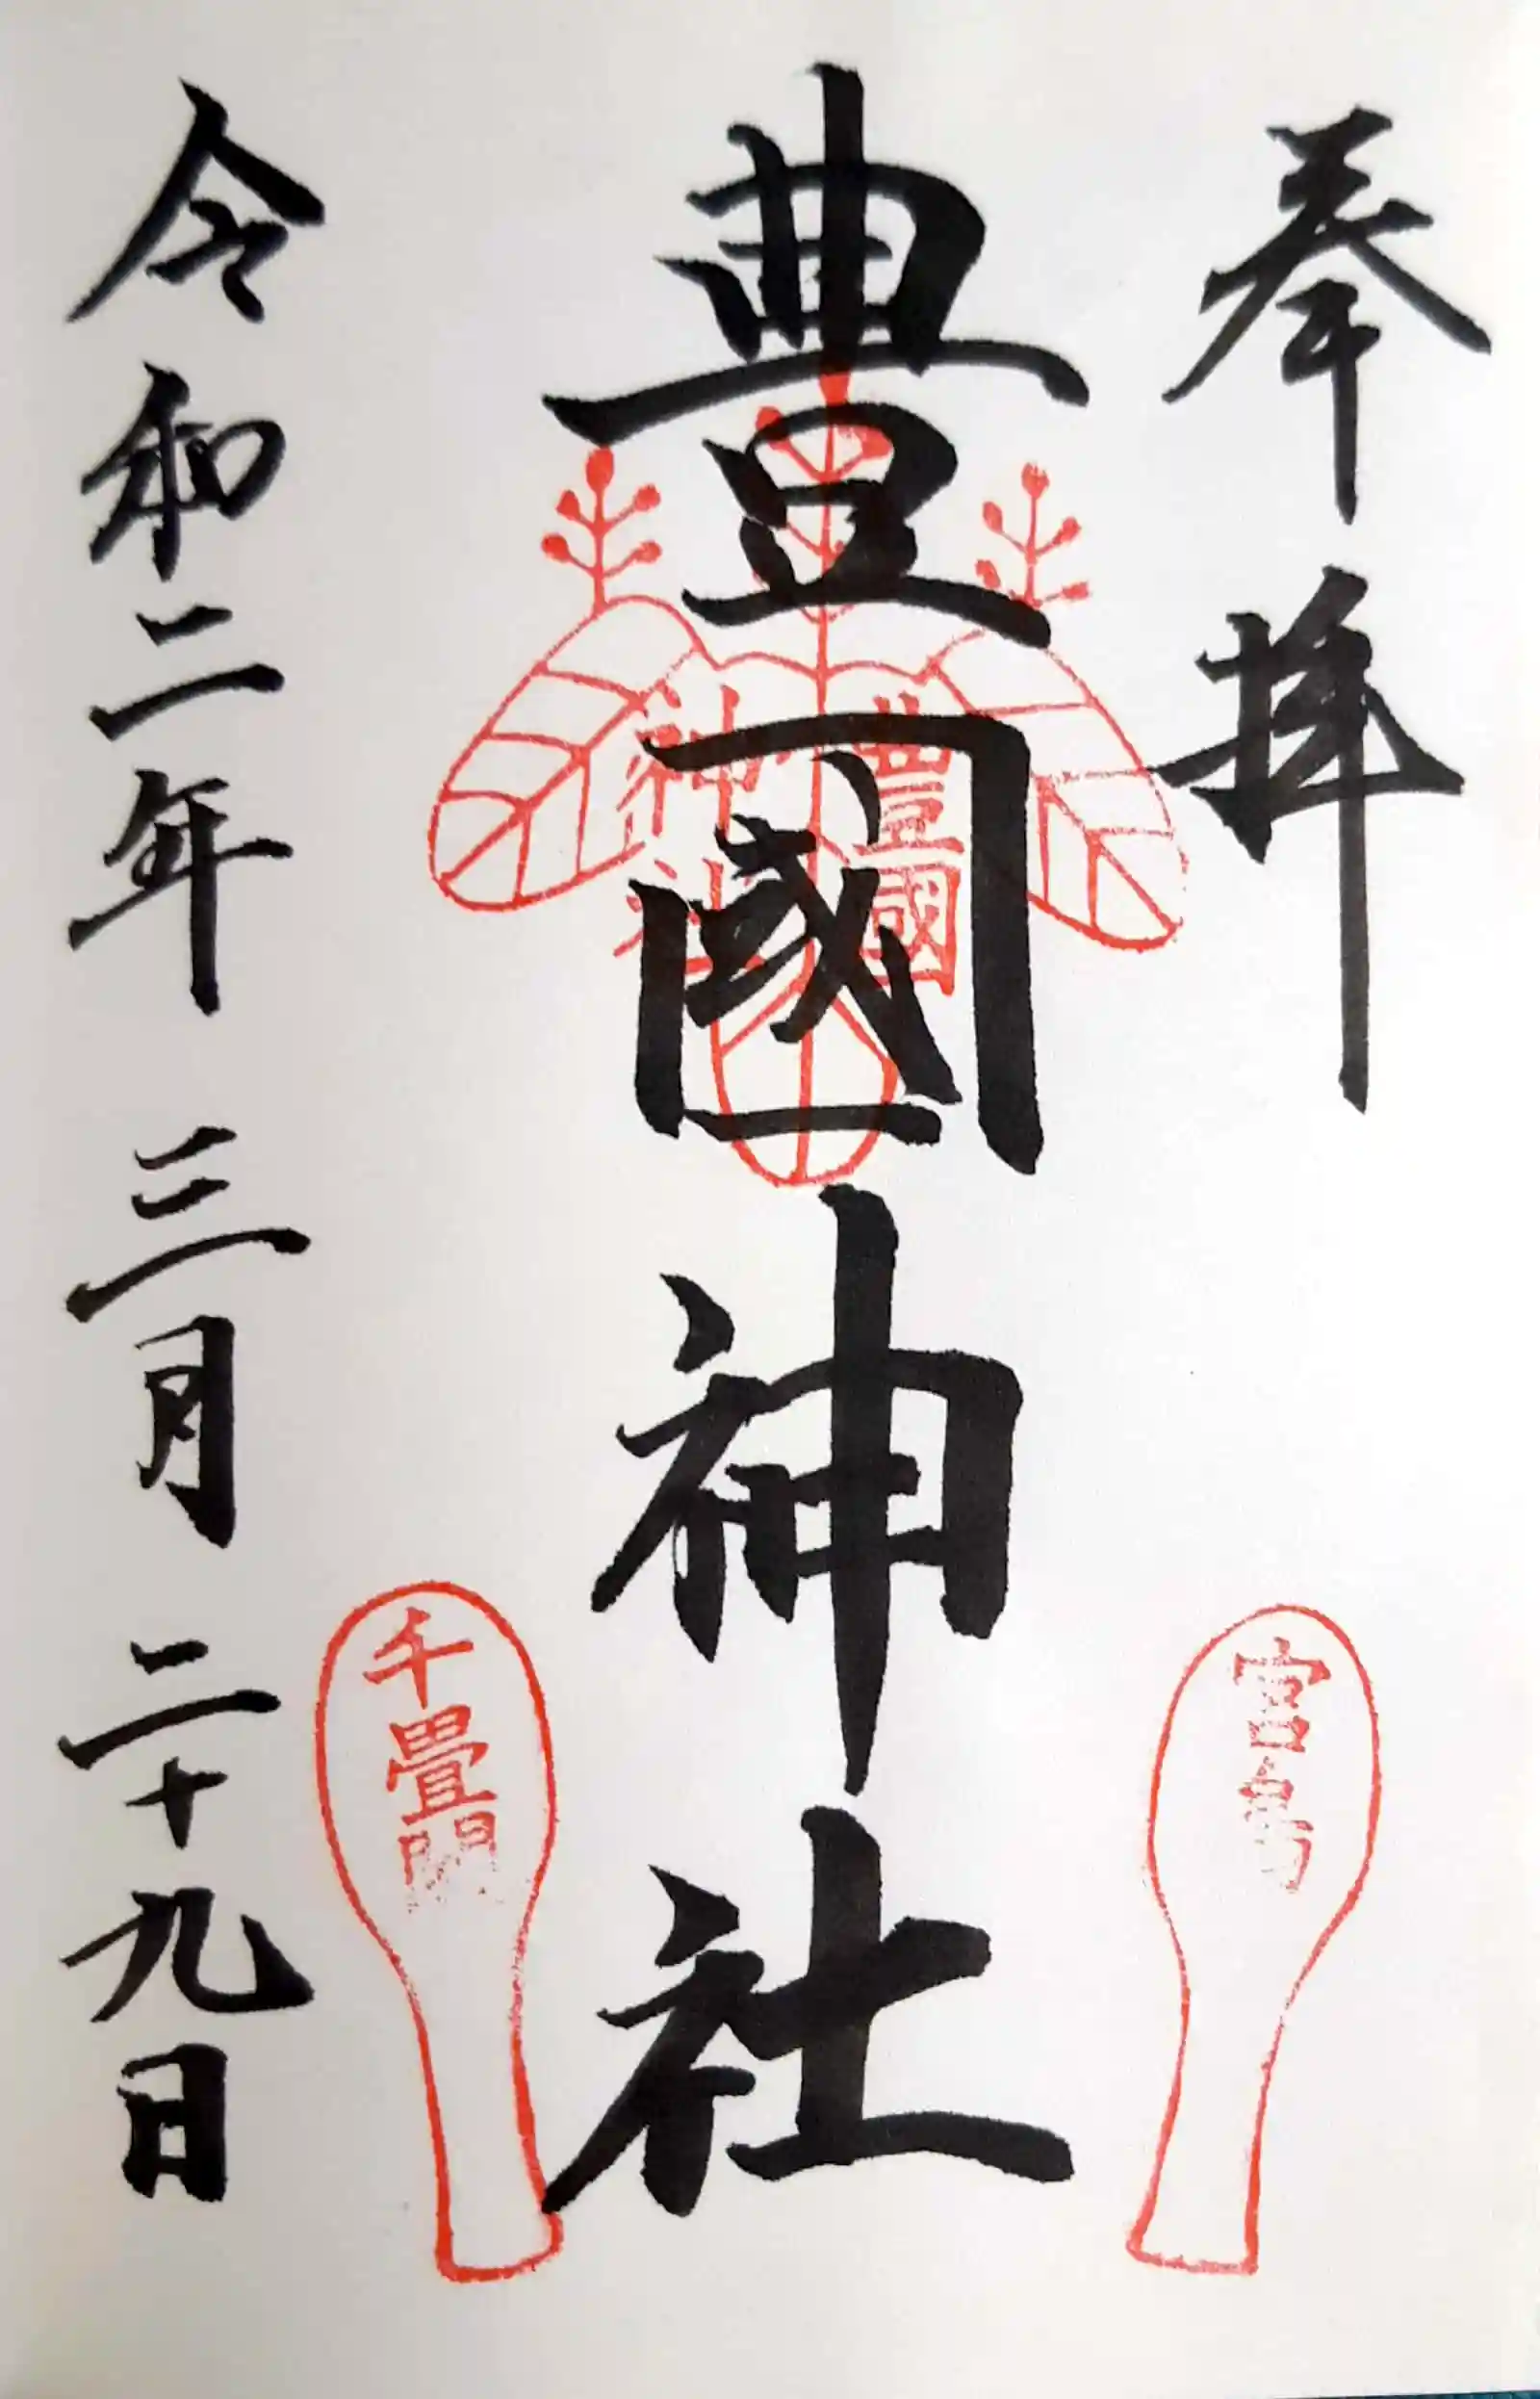 奉拝
豊國神社
豊國
神社
令和二年 三月 二十九日
宮島
千畳閣